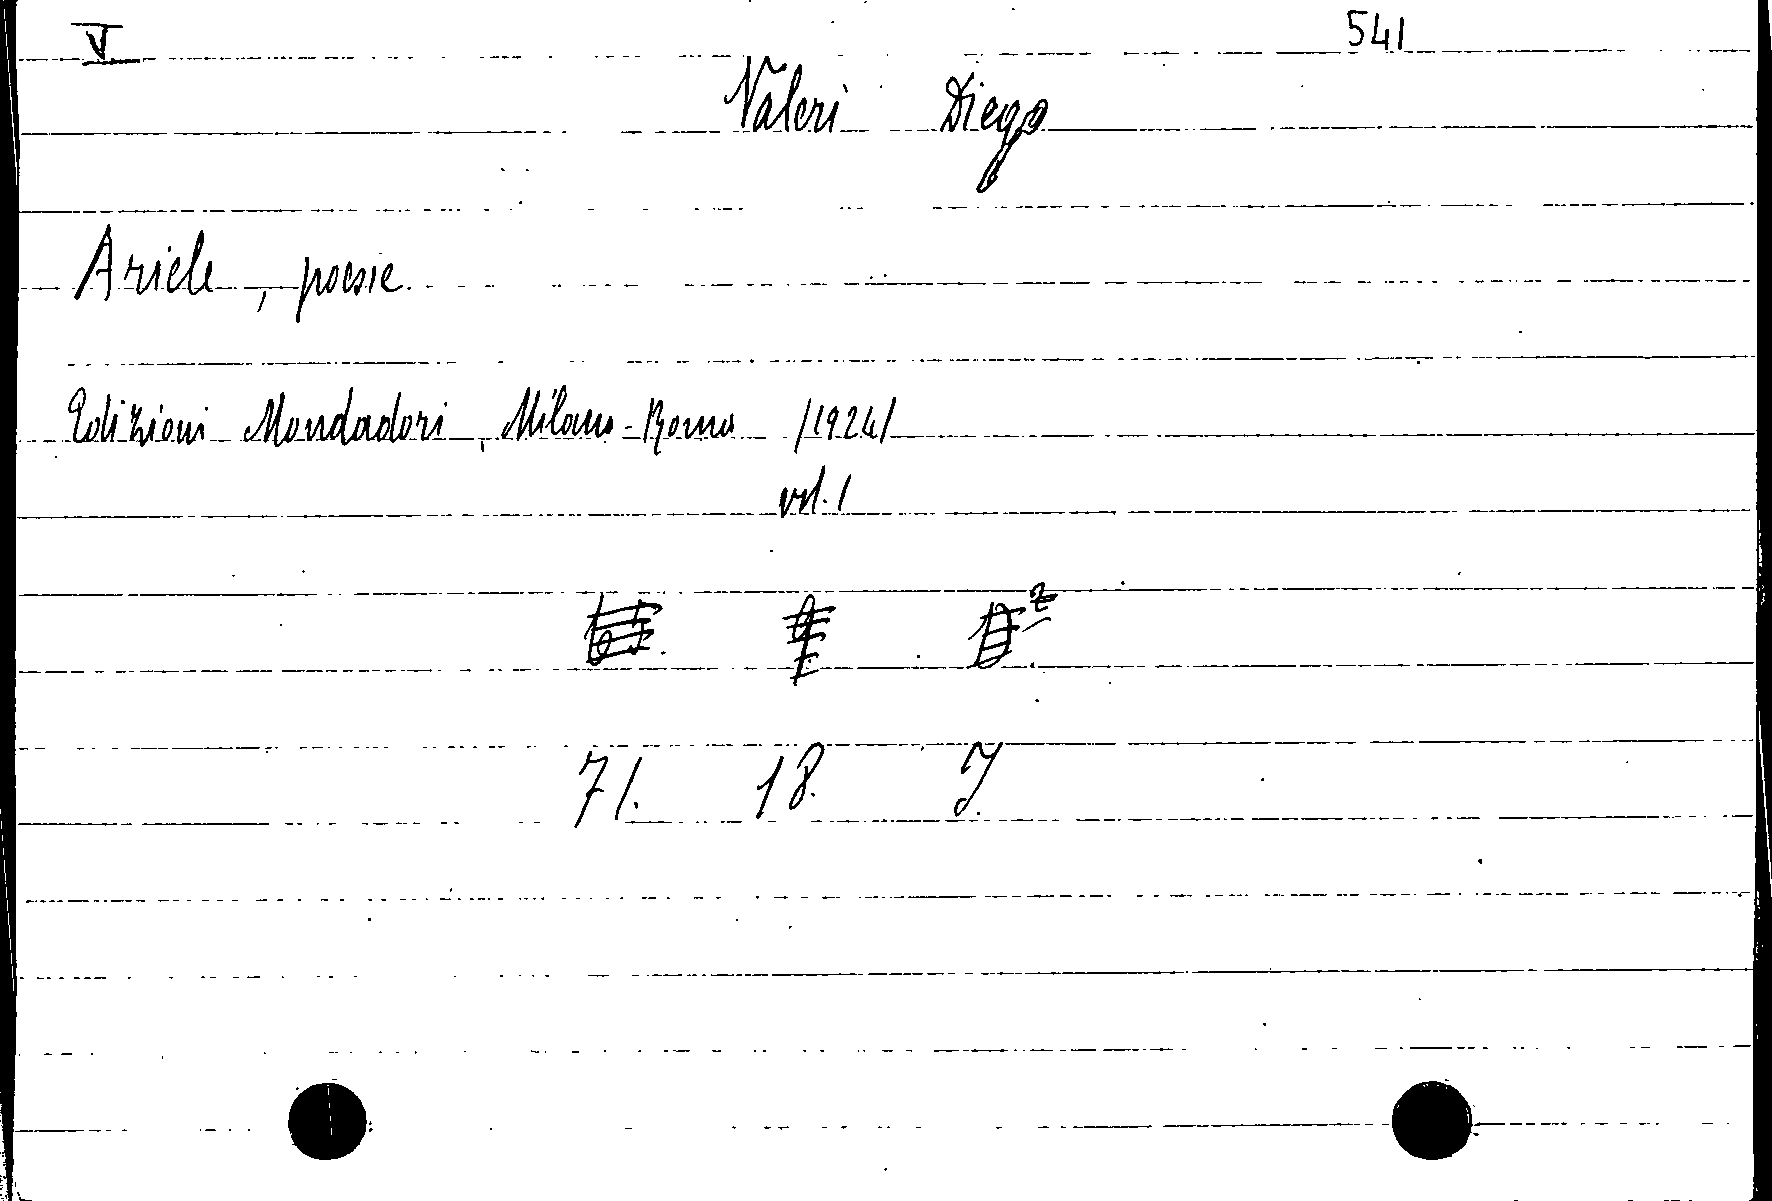 V 541
Valeri Diego
Ariele, poesie.
Edizioni Mondadori, Milano-Roma /1924/
vol. 1
71. 18. J.